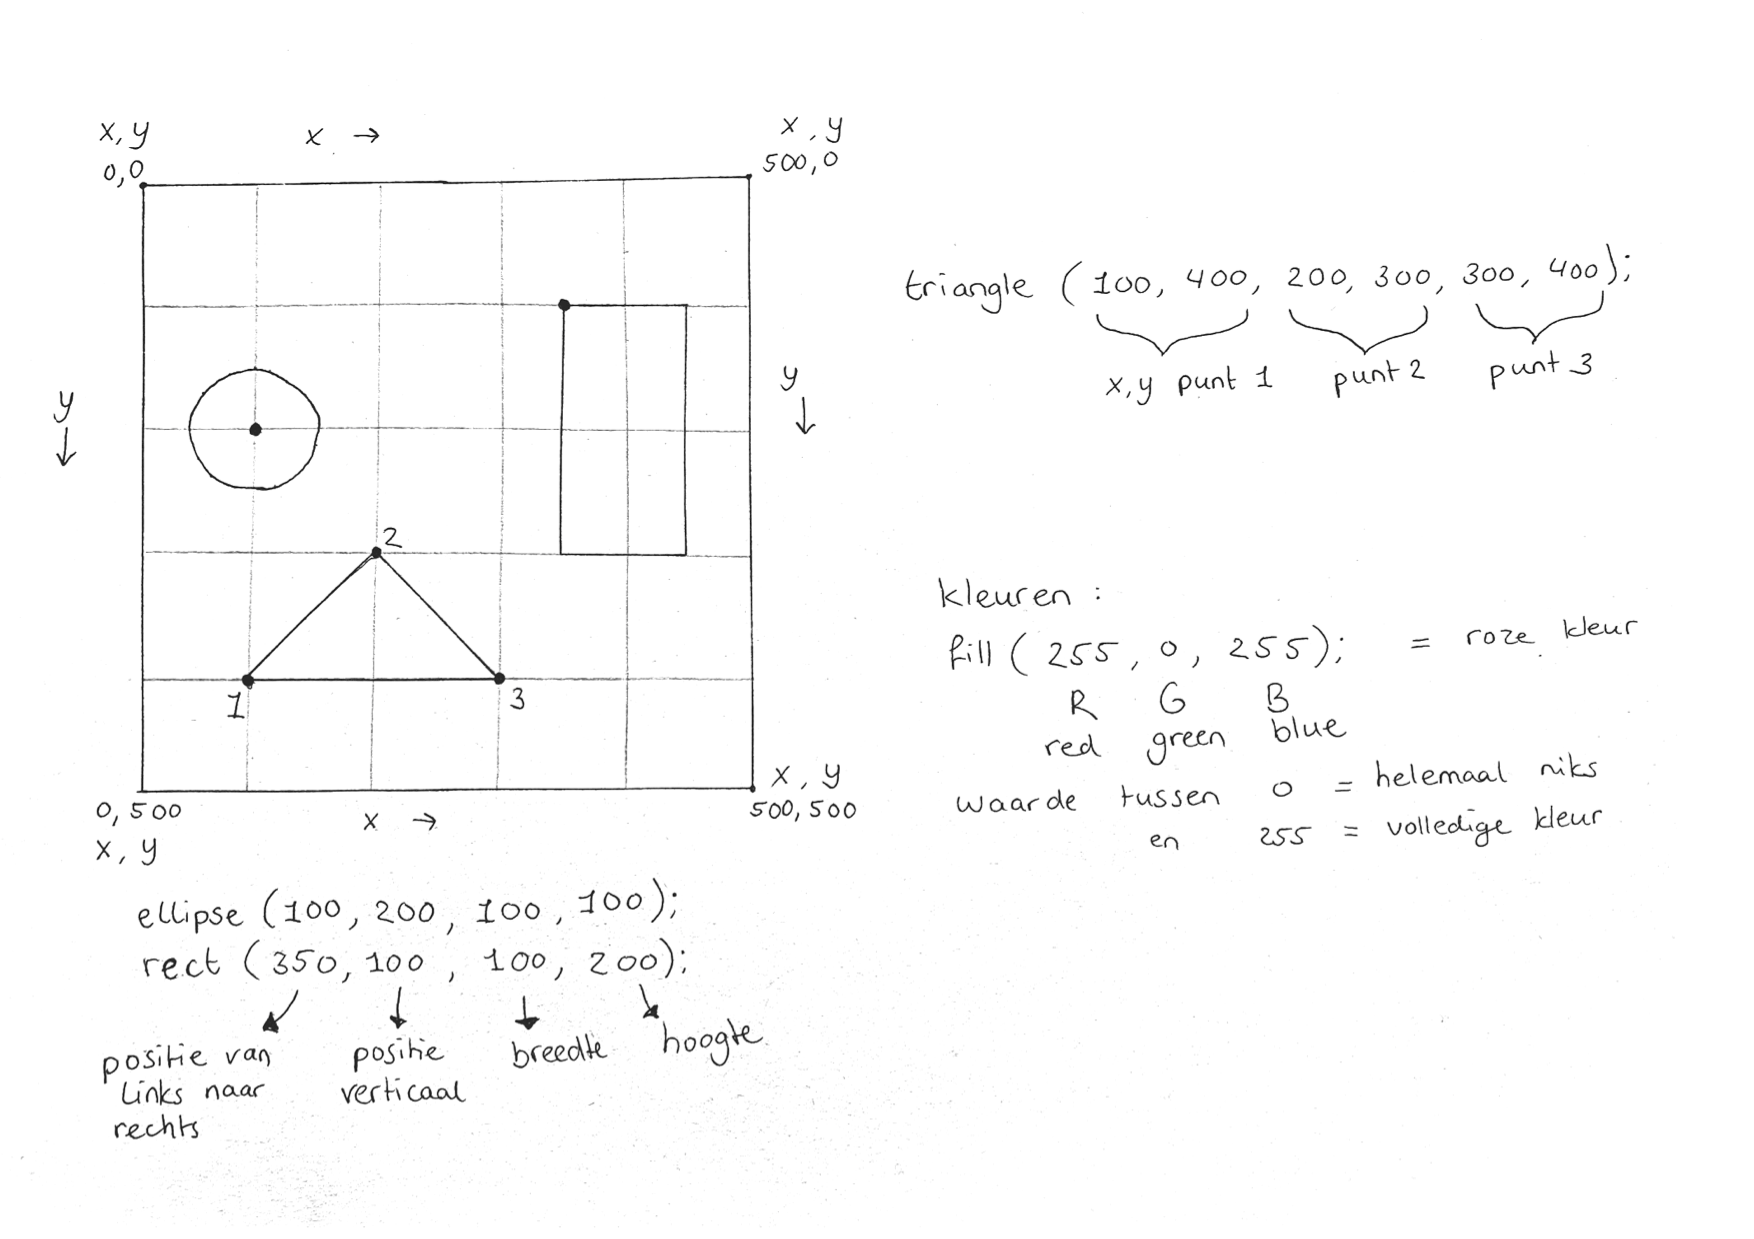 x, y
x →
x, y
0,0
500,0
y
↓
y
↓
2
1
3
0,500
x →
x, y
500,500
x, y
ellipse (100, 200, 100, 100);
rect (350, 100, 100, 200);
positie van
links naar
rechts
positie
verticaal
breedte
hoogte
triangle (100, 400, 200, 300, 300, 400);
x, y punt 1
punt 2
punt 3
kleuren :
fill (255, 0, 255); = roze kleur
R G B
red green blue
waarde tussen 0 = helemaal niks
en 255 = volledige kleur